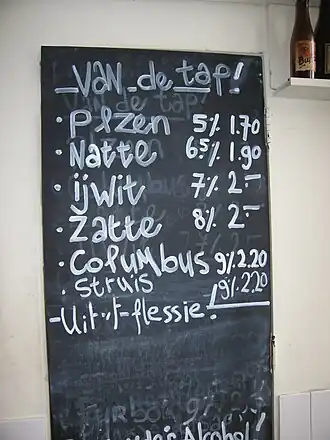 Van de tap!
· Plzen 5% 1.70
· Natte 6.5% 1.90
· ijwit 7% 2.-
· Zatte 8% 2.-
· Columbus 9% 2.20
· Struis 9% 2.20
- Uit 't flessie: